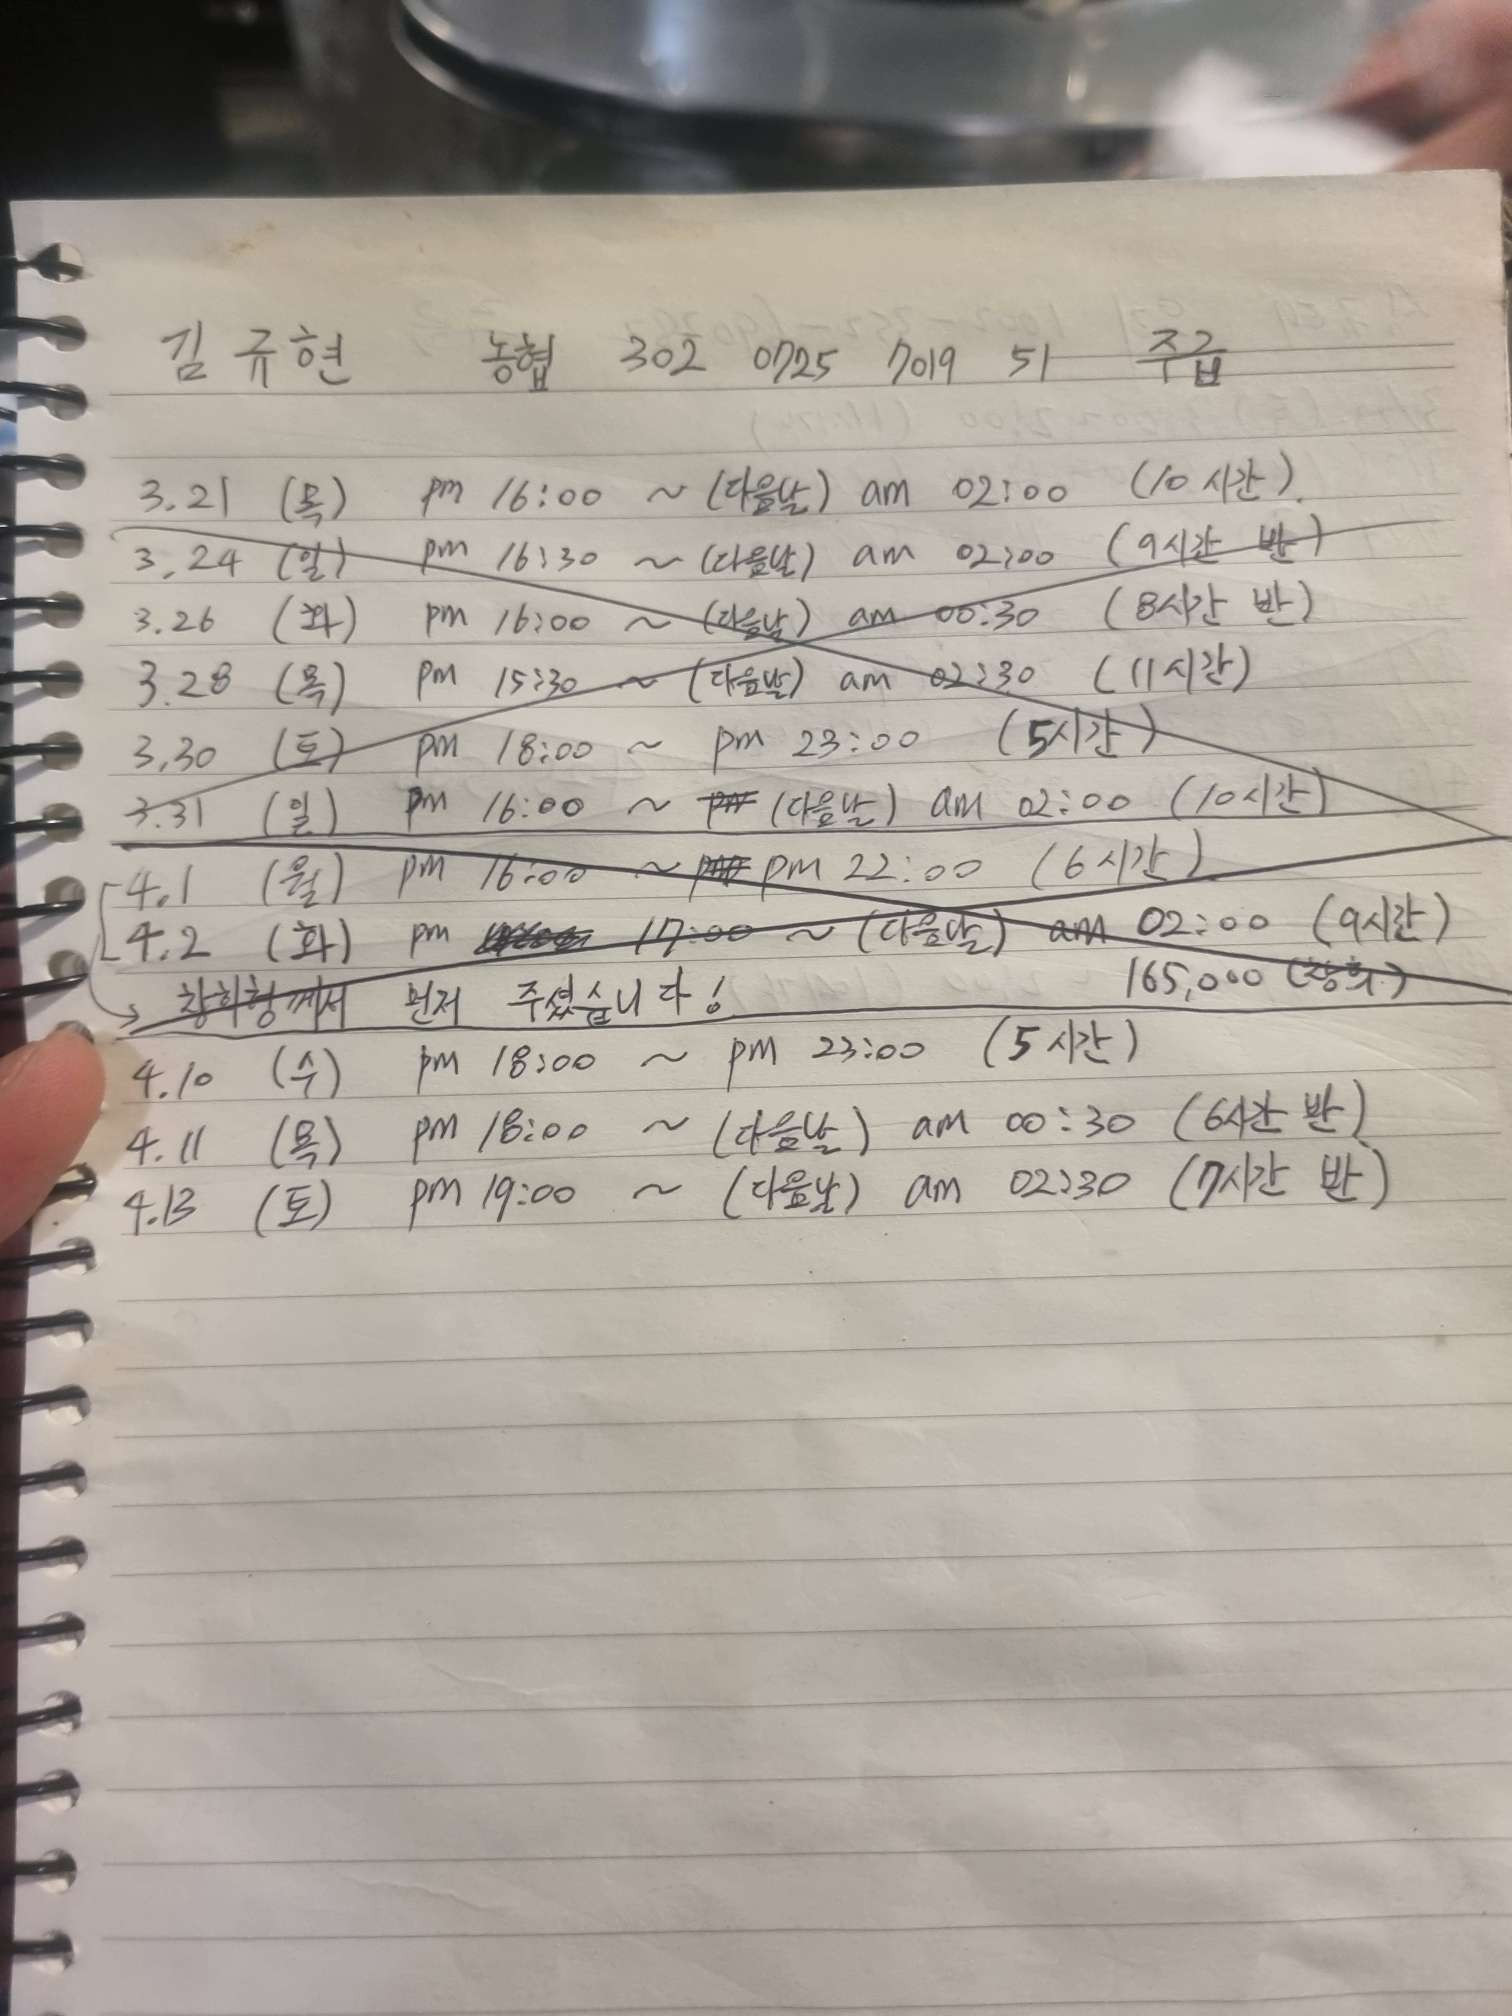 김 규현 농협 302 0725 7019 51 주급
3.21 (목) pm 16:00 ~ (다음날) am 02:00 (10시간).
3.24 (일) pm 16:30 ~ (다음날) am 02:00 (9시간 반)
3.26 (화) pm 16:00 ~ (다음날) am 00:30 (8시간 반)
3.28 (목) pm 15:30 ~ (다음날) am 02:30 (11시간)
3.30 (토) pm 18:00 ~ pm 23:00 (5시간)
3.31 (일) pm 16:00 ~ (다음날) am 02:00 (10시간)
4.1 (월) pm 16:00 ~ pm 22:00 (6시간)
4.2 (화) pm 17:00 ~ (다음날) am 02:00 (9시간)
창희형께서 먼저 주셨습니다! 165,000 (창희)
4.10 (수) pm 18:00 ~ pm 23:00 (5시간)
4.11 (목) pm 18:00 ~ (다음날) am 00:30 (6시간 반)
4.13 (토) pm 19:00 ~ (다음날) am 02:30 (7시간 반)